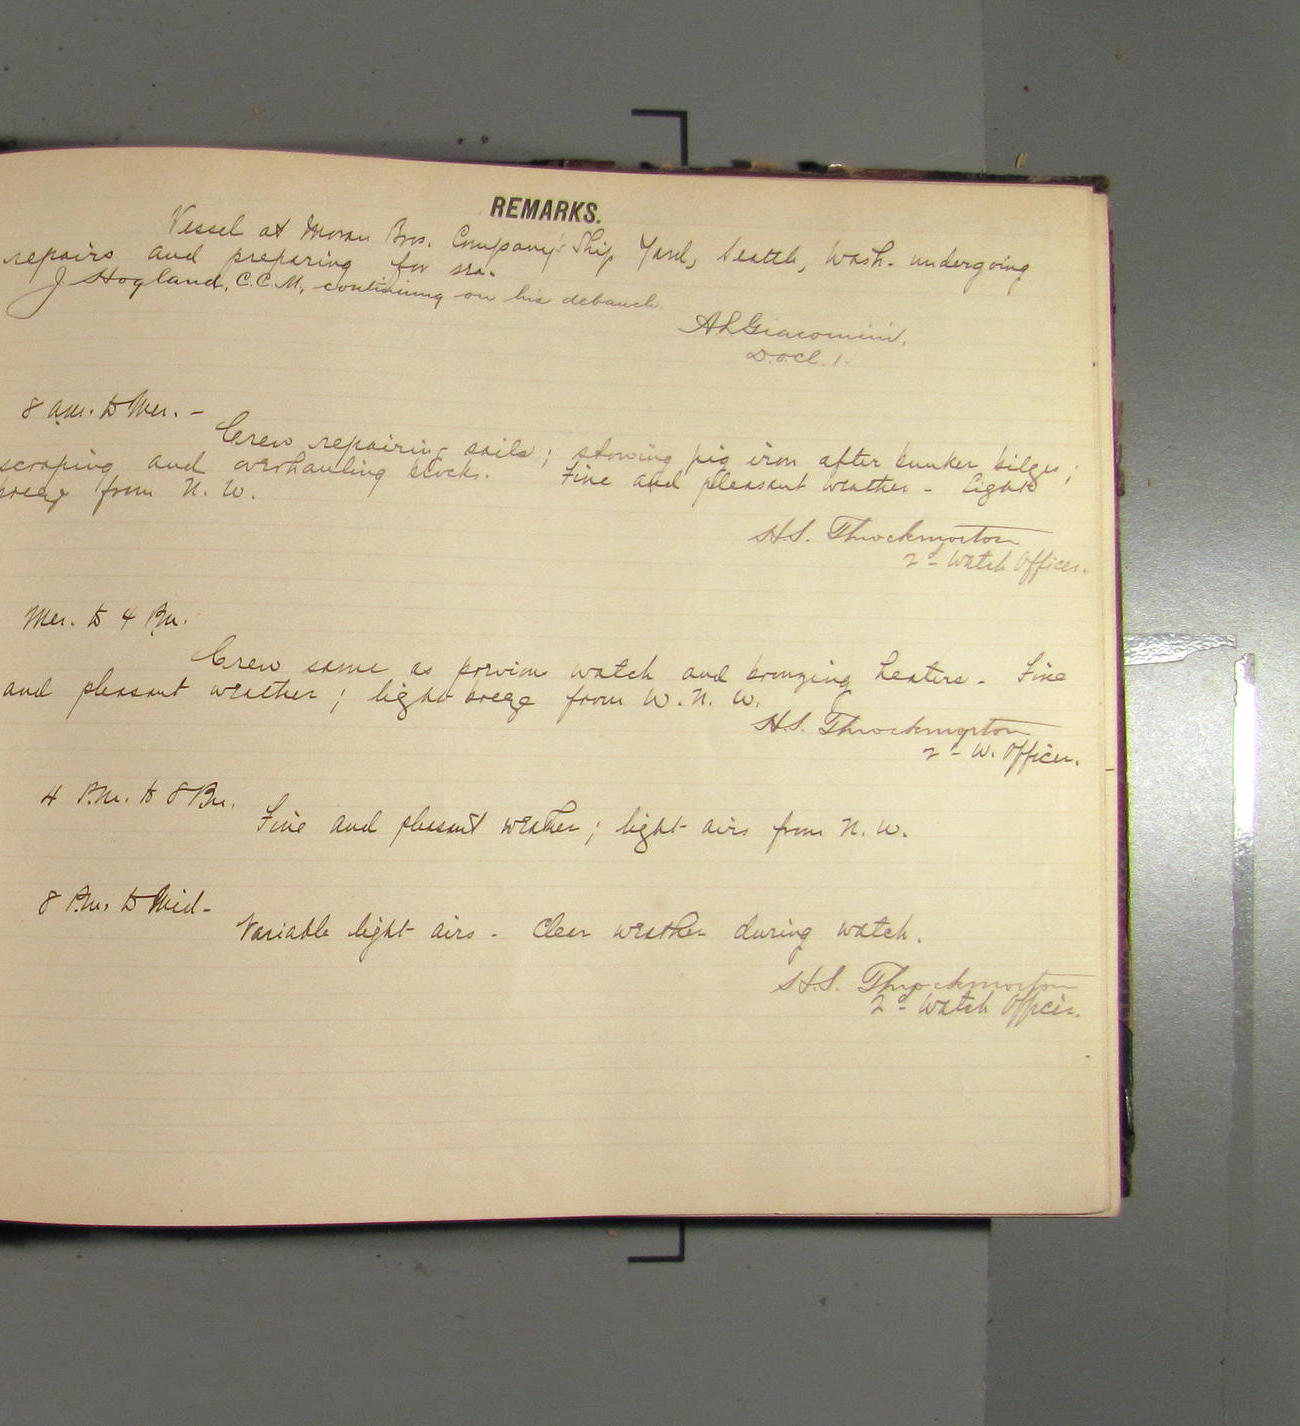 REMARKS.
Vessel at Moran Bros. Company's Ship Yard, Seattle, Wash. undergoing
repairs and preparing for sea.
J Hogland, C.C.M, continuing on his debauch.
A L Giacomini,
8 a.m. to Mer. -
Crew repairing sails; stowing pig iron after bunker bilges;
scraping and overhauling blocks. Fine and pleasant weather - Light
breeze from N. W.
H.S. Throckmorton
2d Watch Officer.
Mer. to 4 P.m.
Crew same as previous watch and bronzing heaters. Fine
and pleasant weather; light breeze from W. N. W.
H.S. Throckmorton
2d W. Officer.
4 P.m. to 8 P.m.
Fine and pleasant weather; light airs from N. W.
8 P.m. to Mid-
Variable light airs - Clear weather during watch.
H.S. Throckmorton
2d Watch Officer.